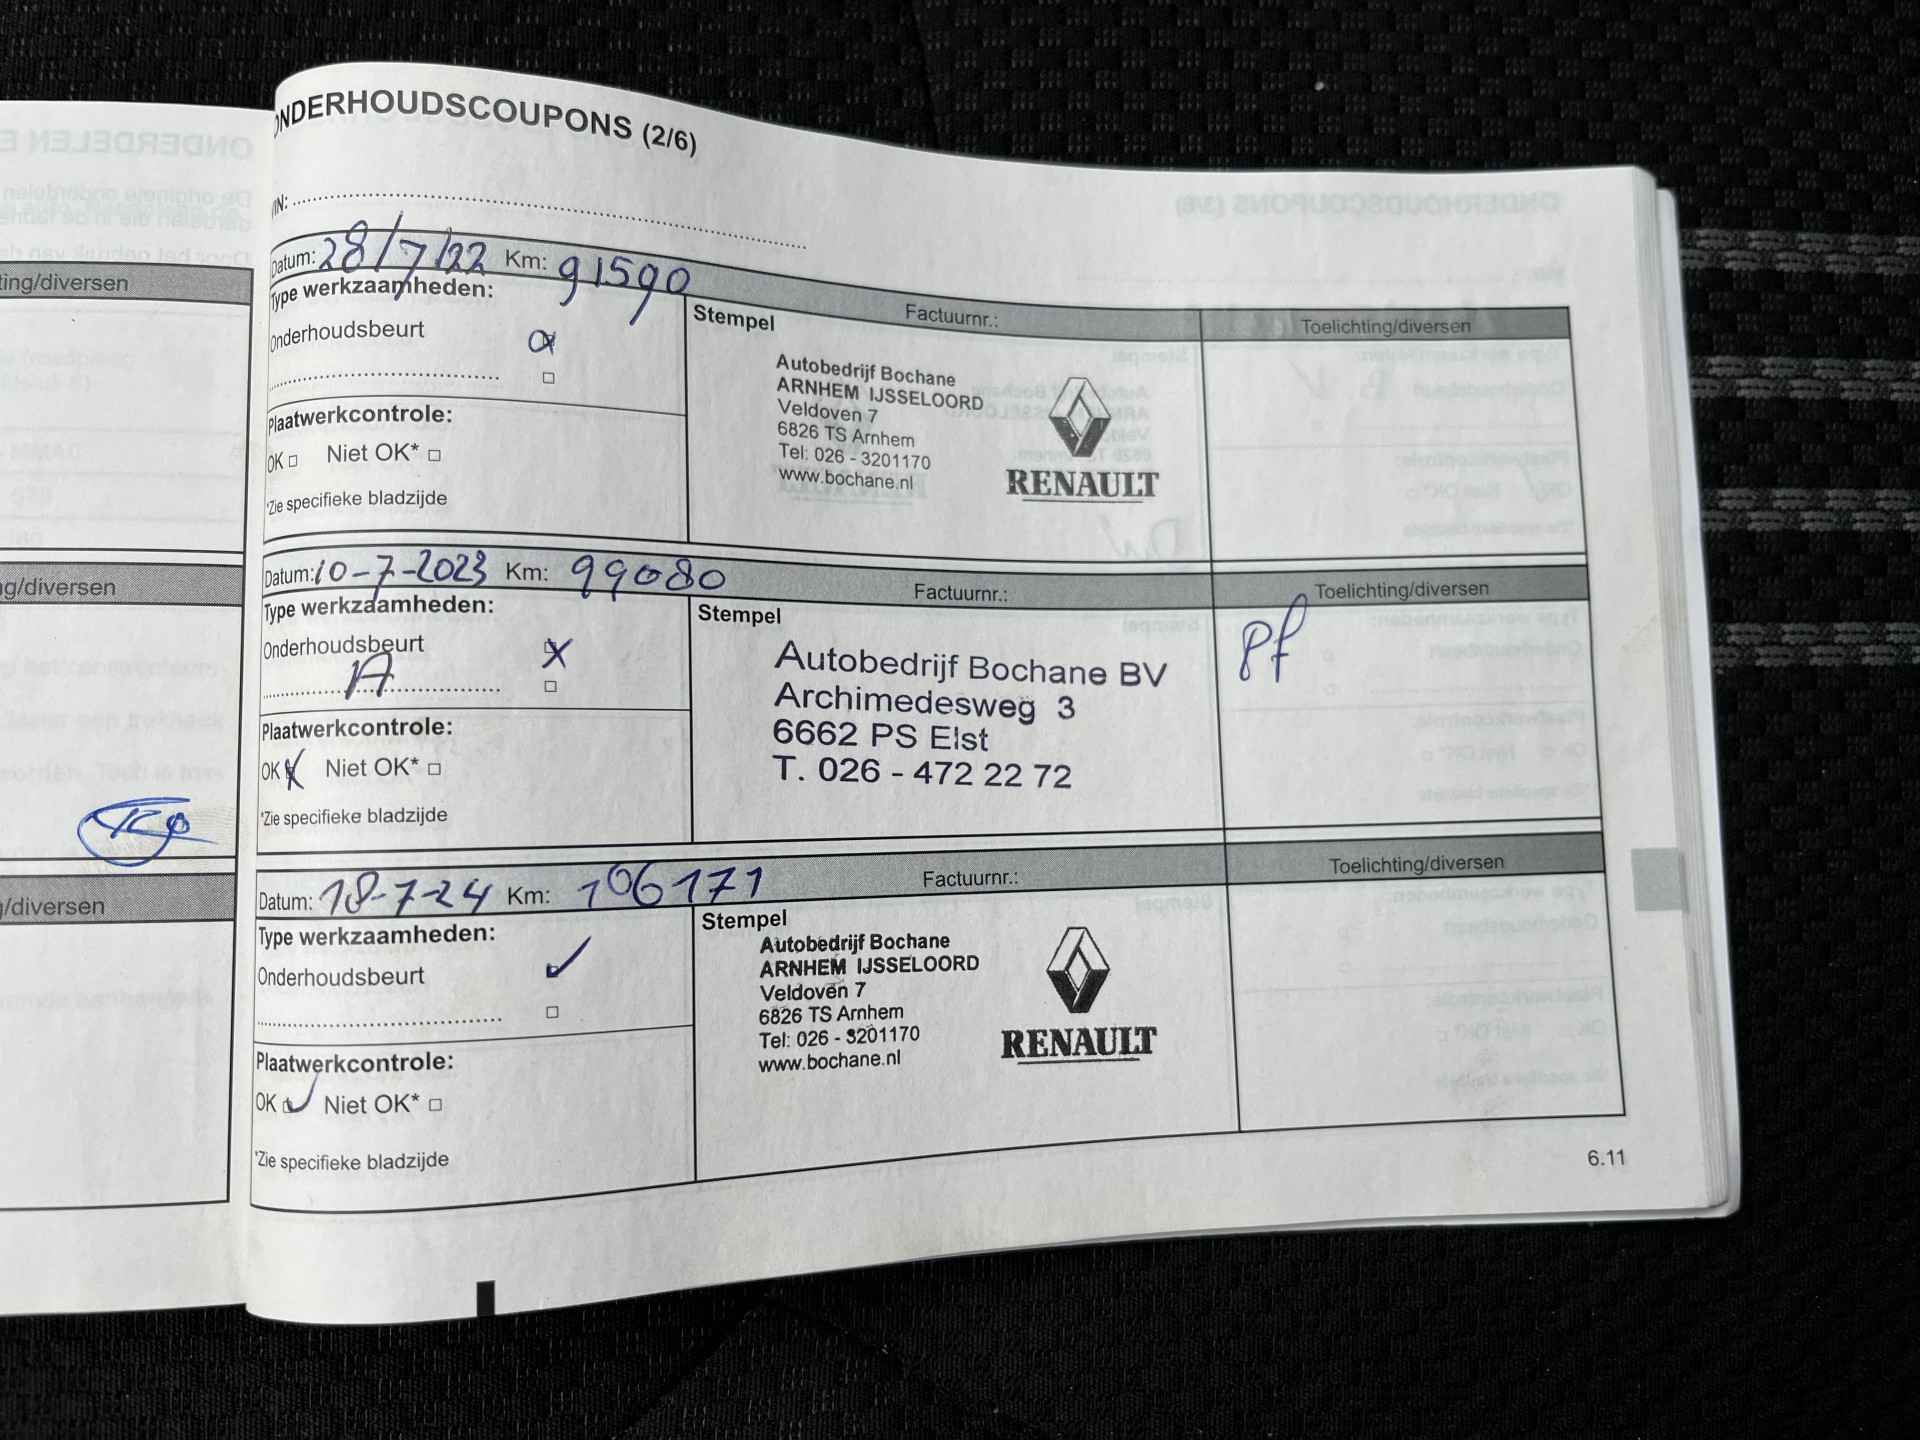 ting/diversen
g/diversen
g/diversen
ONDERHOUDSCOUPONS (2/6)
VIN:
Datum: 28/7/22 Km: 91590
Factuurnr.:
Toelichting/diversen
Type werkzaamheden:
Onderhoudsbeurt
Plaatwerkcontrole:
OK □ Niet OK* □
*Zie specifieke bladzijde
Stempel
Autobedrijf Bochane
ARNHEM IJSSELOORD
Veldoven 7
6826 TS Arnhem
Tel: 026 - 3201170
www.bochane.nl
RENAULT
Datum: 10-7-2023 Km: 99080
Factuurnr.:
Toelichting/diversen
Type werkzaamheden:
Onderhoudsbeurt X
A
Plaatwerkcontrole:
OK X Niet OK* □
*Zie specifieke bladzijde
Stempel
Autobedrijf Bochane BV
Archimedesweg 3
6662 PS Elst
T. 026 - 472 22 72
Pf
Datum: 18-7-24 Km: 106171
Factuurnr.:
Toelichting/diversen
Type werkzaamheden:
Onderhoudsbeurt ✓
Plaatwerkcontrole:
OK ✓ Niet OK* □
*Zie specifieke bladzijde
Stempel
Autobedrijf Bochane
ARNHEM IJSSELOORD
Veldoven 7
6826 TS Arnhem
Tel: 026 - 3201170
www.bochane.nl
RENAULT
6.11